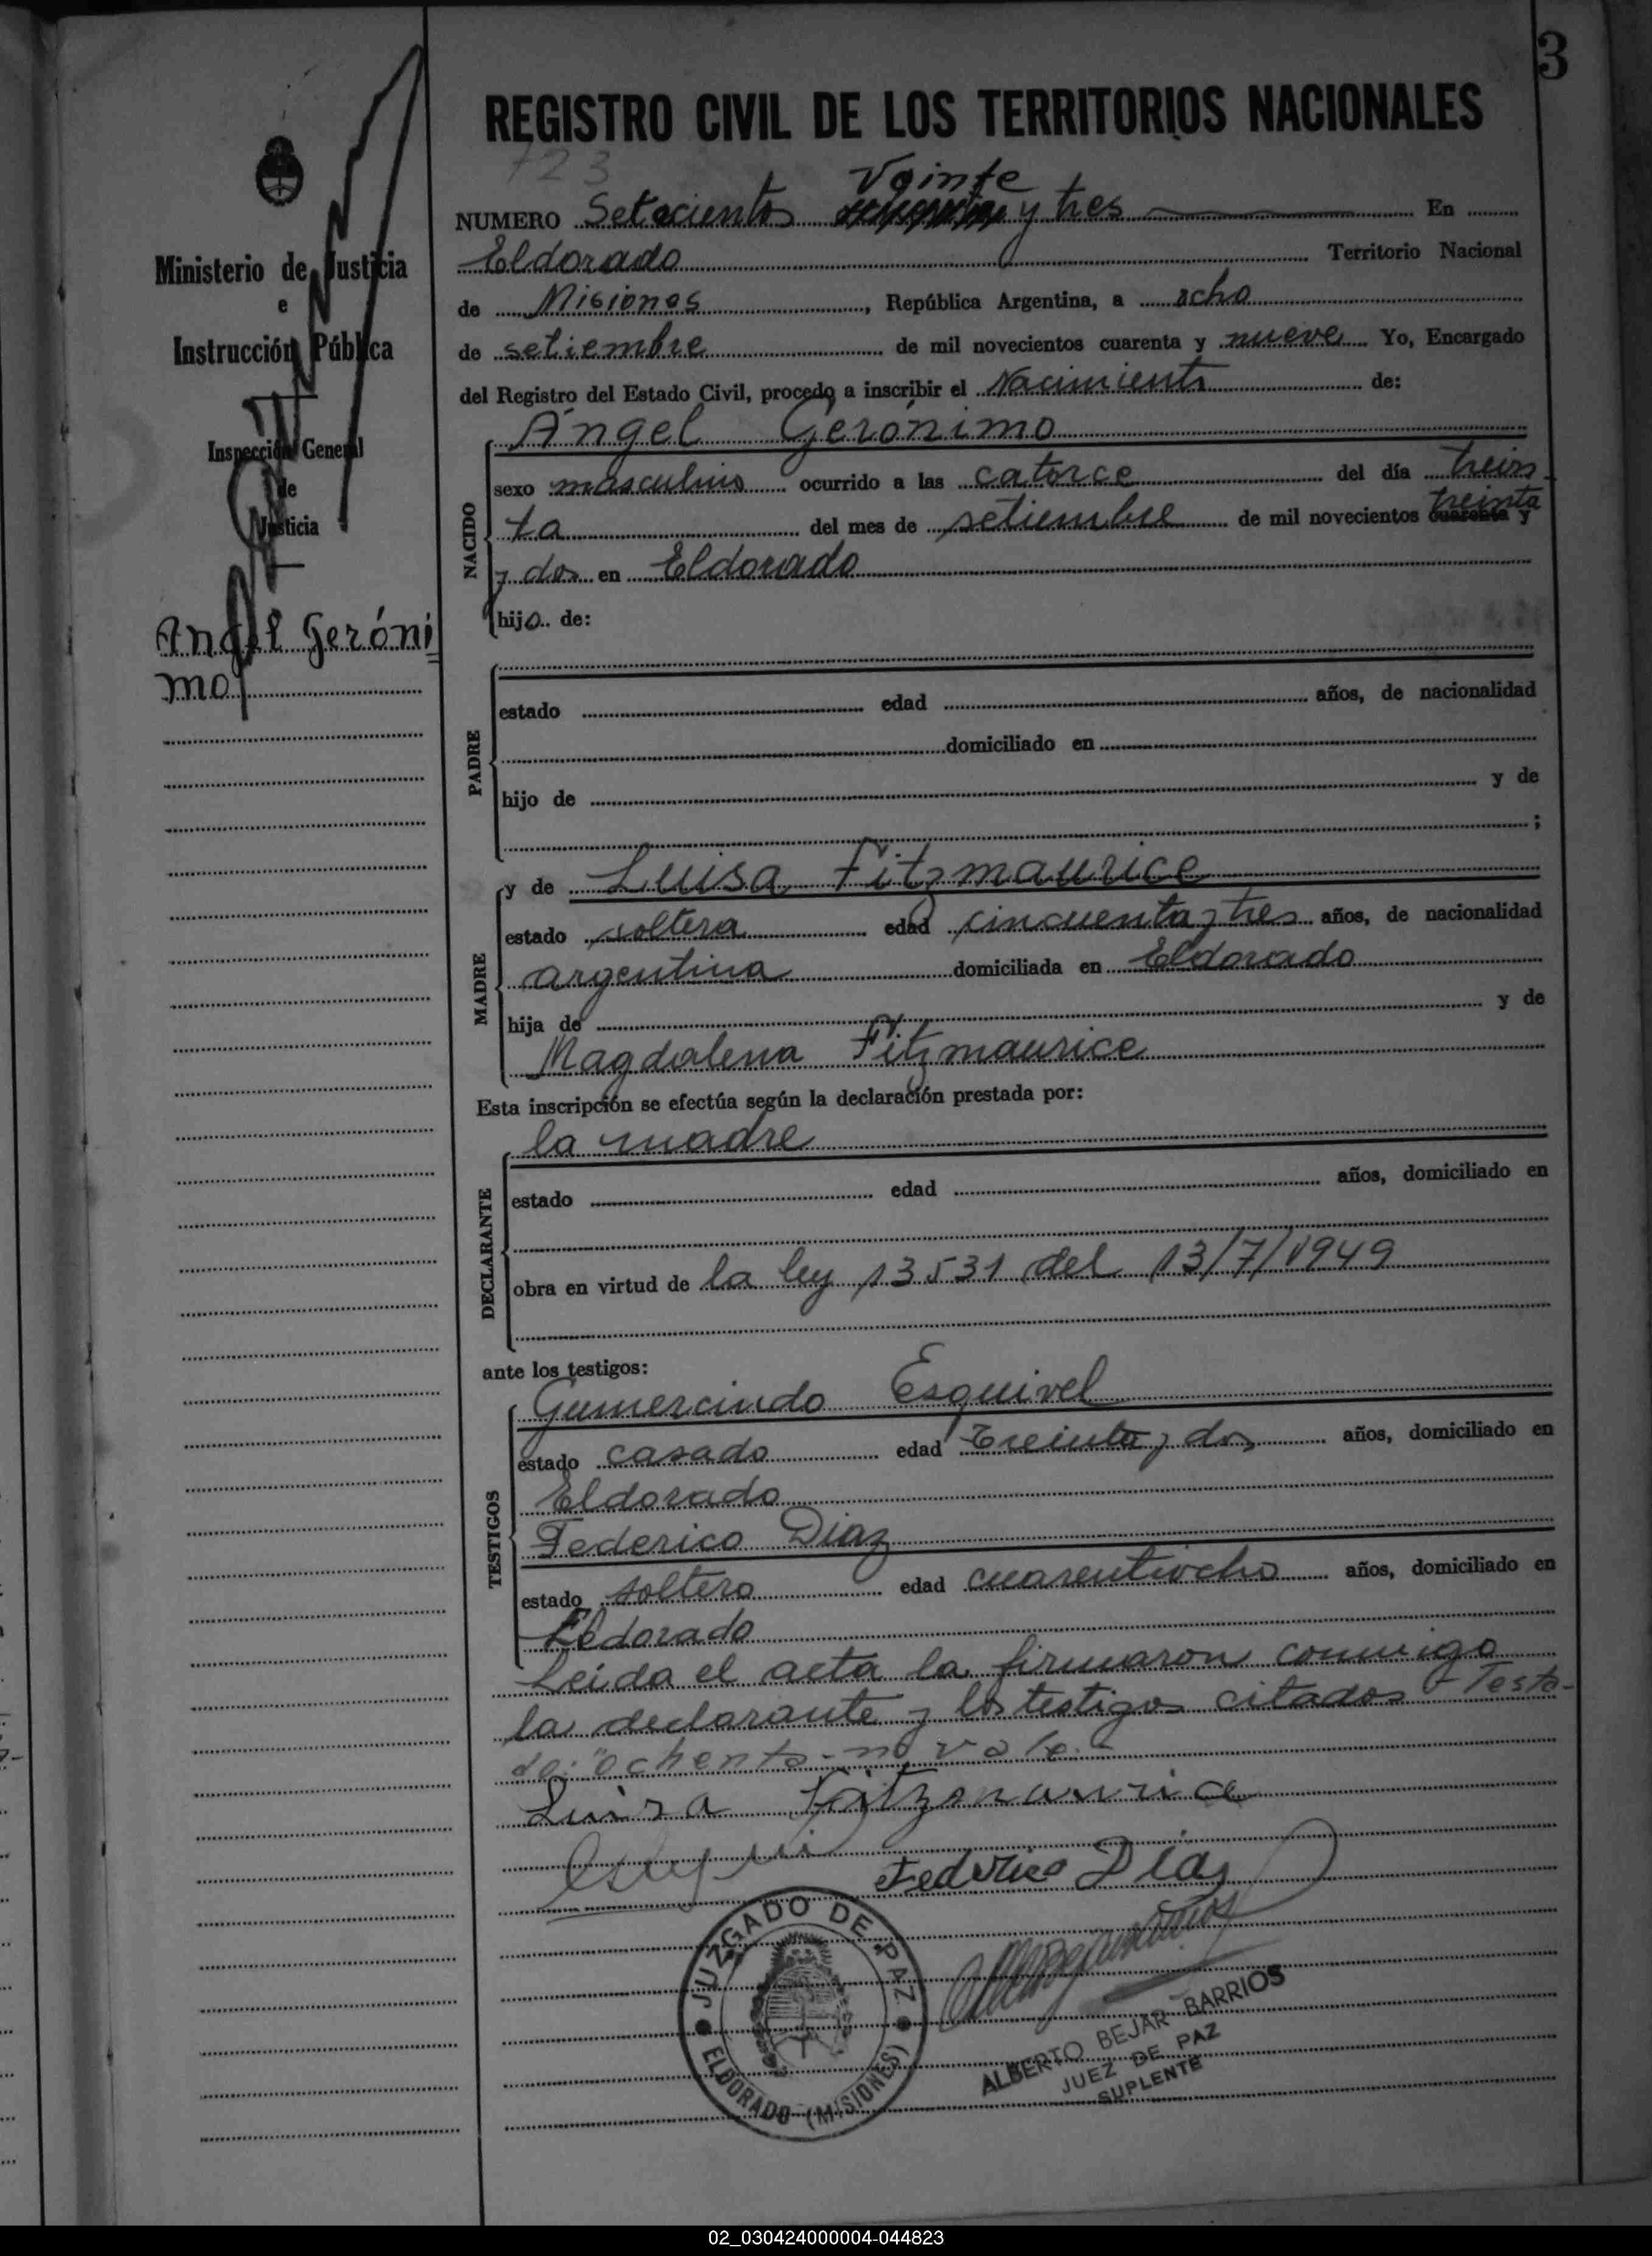 3
REGISTRO CIVIL DE LOS TERRITORIOS NACIONALES
723
Vainte
NUMERO Setecientos y tres En
Eldorado Territorio Nacional
de Misiones, República Argentina, a ocho
de setiembre de mil novecientos cuarenta y nueve Yo, Encargado
del Registro del Estado Civil, procedo a inscribir el Nacimiento de:
Ministerio de Justicia
e
Instrucción Pública
Inspección General
de
Justicia
Angel Geróni
mo
NACIDO
Ángel Gerónimo
sexo masculino ocurrido a las catorce del día trein
treinta
ta del mes de setiembre de mil novecientos cuarenta y
y dos en Eldorado
hijo de:
PADRE
estado edad años, de nacionalidad
domiciliado en
hijo de y de
;
MADRE
y de Luisa Fitzmaurice
estado soltera edad cincuenta y tres años, de nacionalidad
argentina domiciliada en Eldorado
hija de y de
Magdalena Fitzmaurice
Esta inscripción se efectúa según la declaración prestada por:
DECLARANTE
la madre
estado edad años, domiciliado en
obra en virtud de la ley 13531 del 13/7/1949
ante los testigos:
TESTIGOS
Gumercindo Esquivel
estado casado edad Treinta y dos años, domiciliado en
Eldorado
Federico Diaz
estado soltero edad cuarentiocho años, domiciliado en
Eldorado
Leída el acta la firmaron conmigo
la declarante y los testigos citados - Testa-
do: "ochenta - no vale.
Luisa Fitzmaurice
Federico Diaz
JUZGADO DE PAZ
ELDORADO (MISIONES)
ALBERTO BEJAR BARRIOS
JUEZ DE PAZ
SUPLENTE
02_030424000004-044823